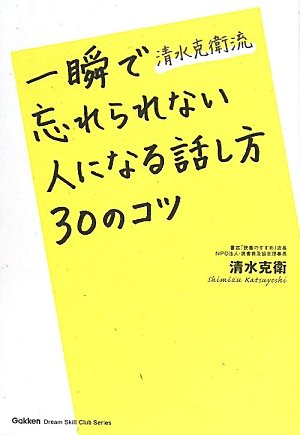 一瞬で 清水克衛流
忘れられない
人になる話し方
30のコツ
書店「読書のすすめ」店長
NPO法人・読書普及協会理事長
清水克衛
Shimizu Katsuyoshi
Gakken Dream Skill Club Series